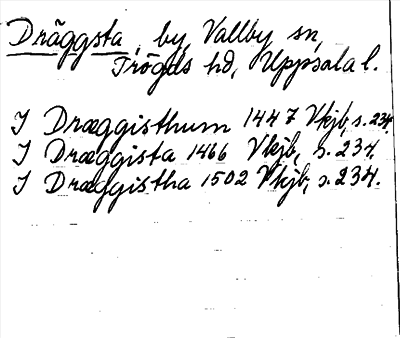 Dräggsta, by, Vallby sn,
Trögds hd, Uppsala l.
I Dræggisthum 1447 Vkjb, s. 234.
I Dræggista 1466 Vkjb, s. 234.
I Dræggistha 1502 Vkjb, s. 234.